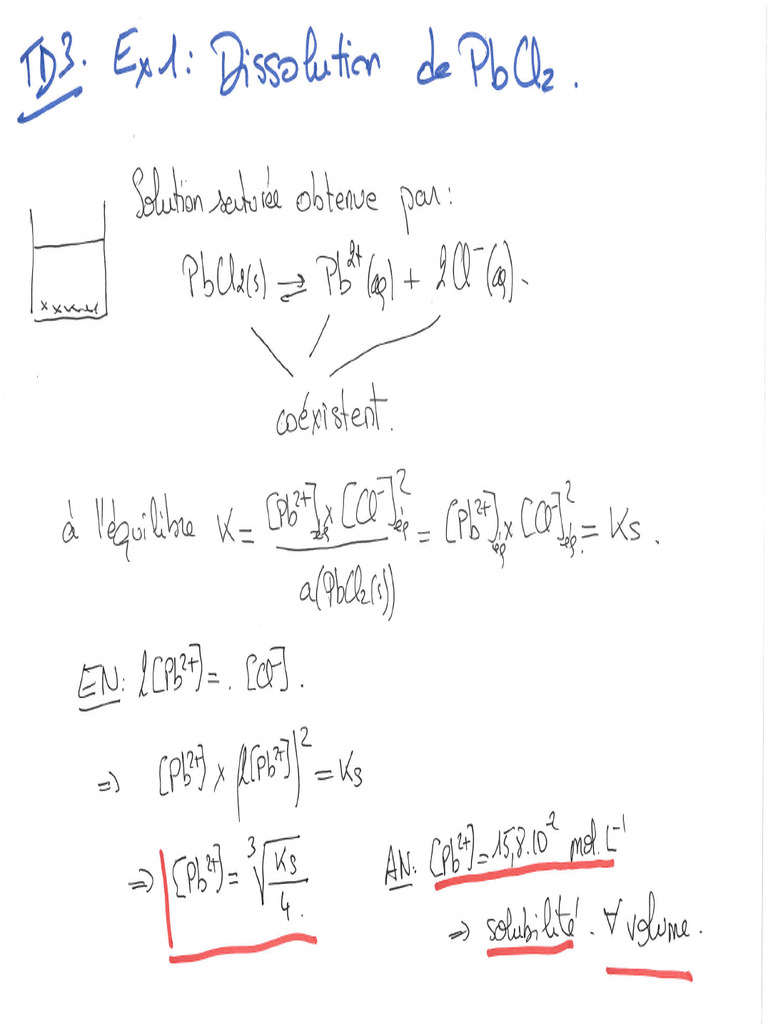 TD3. Ex1: Dissolution de PbCl₂.
Solution saturée obtenue par:
PbCl₂(s) ⇌ Pb²⁺(aq) + 2Cl⁻(aq).
coéxistent.
à l'équilibre K = [Pb²⁺]éq × [Cl⁻]²éq / a(PbCl₂(s)) = [Pb²⁺]éq × [Cl⁻]²éq = Ks.
EN: 2[Pb²⁺] = . [Cl⁻].
⇒ [Pb²⁺] × (2[Pb²⁺])² = Ks
⇒ [Pb²⁺] = ³√(Ks/4). AN: [Pb²⁺] = 15,8.10⁻² mol.L⁻¹
⇒ solubilité. ∀ volume.